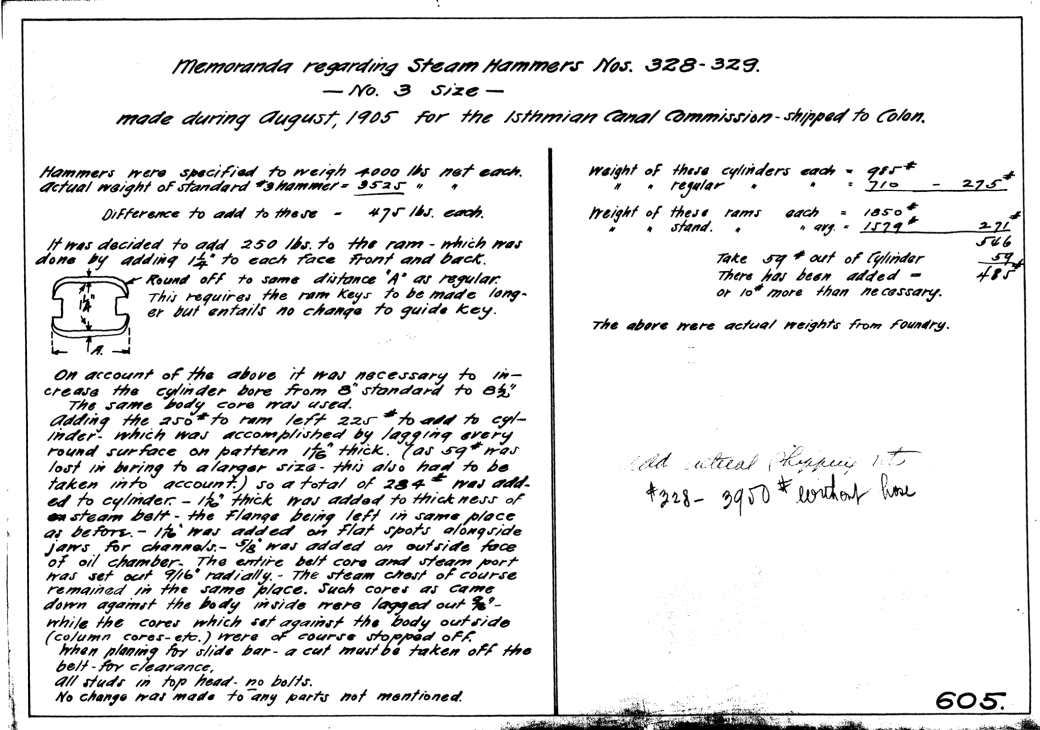 Memoranda regarding Steam Hammers Nos. 328-329.
— No. 3 Size —
made during August, 1905 for the Isthmian Canal Commission - shipped to Colon.
Hammers were specified to weigh 4000 lbs net each.
Actual weight of standard #3 hammer = 3525 " "
Difference to add to these - 475 lbs. each.
It was decided to add 250 lbs. to the ram - which was
done by adding 1¼" to each face front and back.
Round off to same distance "A" as regular.
This requires the ram keys to be made long-
er but entails no change to guide key.
1¼"
A.
On account of the above it was necessary to in-
crease the cylinder bore from 8" standard to 8½"
The same body core was used.
Adding the 250# to ram left 225# to add to cyl-
inder - which was accomplished by lagging every
round surface on pattern 1 1/16" thick. (as 59# was
lost in boring to a larger size - this also had to be
taken into account.) so a total of 284# was add-
ed to cylinder. - 1½" thick was added to thickness of
steam belt - the flange being left in same place
as before. - 1 1/16" was added on flat spots alongside
jaws for channels. - 5/8" was added on outside face
of oil chamber. The entire belt core and steam port
was set out 9/16" radially. - The steam chest of course
remained in the same place. Such cores as came
down against the body inside were lagged out -
while the cores which set against the body outside
(column cores - etc.) were of course stopped off.
When planing for slide bar - a cut must be taken off the
belt - for clearance.
All studs in top head - no bolts.
No change was made to any parts not mentioned.
Weight of these cylinders each = 985#
" " regular " " = 710 - 275#
Weight of these rams each = 1850#
" " stand. " " avg. = 1579# 271
546
Take 59# out of Cylinder 59
There has been added = 485#
or 10# more than necessary.
The above were actual weights from foundry.
add actual shipping wts
#328 - 3950# without hose
605.